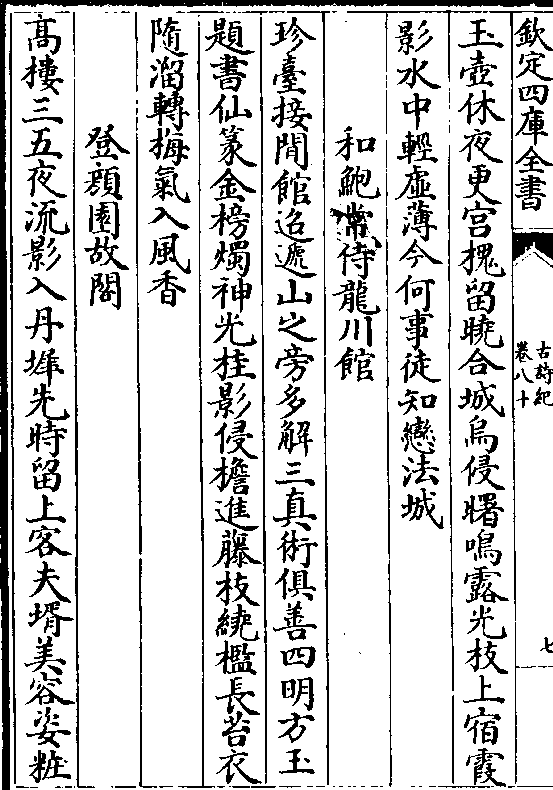 欽定四庫全書
古詩紀
卷八十
七
玉壺休夜更宮槐留曉合城烏侵曙鳴露光枝上宿霞
影水中輕虛薄今何事徒知戀法城
和鮑常侍龍川館
珍臺接閒館迢遰山之旁多解三真術俱善四明方玉
題書仙篆金榜燭神光桂影侵檐進藤枝繞檻長苔衣
隨溜轉梅氣入風香
登顏園故閣
高樓三五夜流影入丹墀先時留上客夫壻美容姿粧